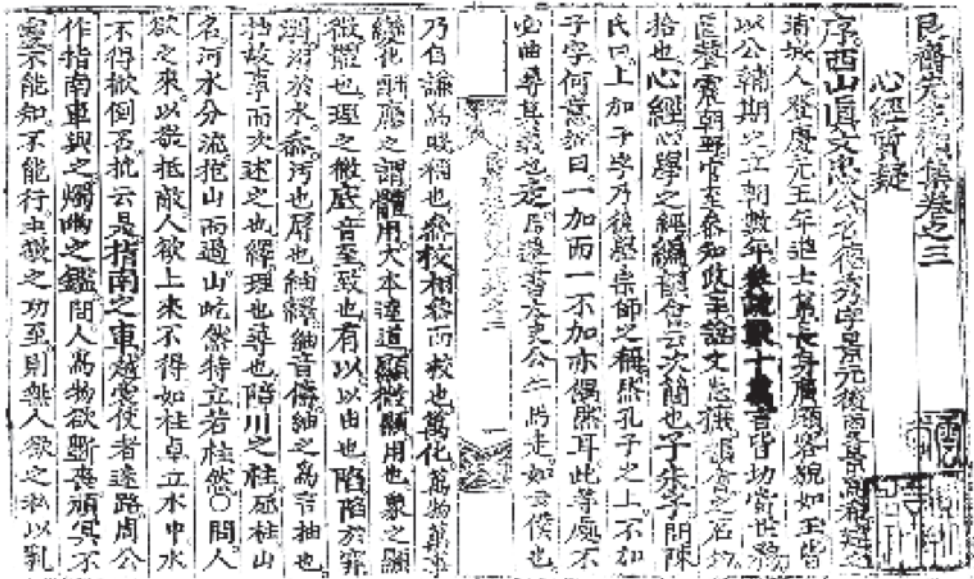 艮齋先生續集卷之三
心經質疑
序西山眞文忠公公名德秀字景元
浦城人登慶元五年進士第長身廣額容貌如玉皆
以公輔期之立朝數年奏疏數十萬言皆切當世
朝野官至參知政事諡文忠
拾也心經心學之經編 云次簡也子朱子問陳
氏曰上加子字乃後學宗師之稱然孔子之上不加
子字何意 曰一加而一不加亦偶然耳此等處不
必曲尋其義也走 太史公牛馬走如云僕也
乃自謙爲賤稱也參校相參而校也萬化萬物萬事
變化酬應之謂體用大本達道顯微顯用也象之顯
微體也理之微底音至致也有以以由也陷陷於穽
溺溺於水 汚也 也紬繹紬音 紬之爲言抽也
抽故事而次述之也繹理也尋也陷川之柱砥柱山
名河水分流抱山而過山屹然特立若柱然○問人
欲之來以敬抵敵人欲上來不得如柱卓立水中水
不得撼倒否 云是指南之車越裳使者迷路周公
作指南車與之燭幽之鑑問人爲物欲斲喪頑冥不
靈不能知不能行主敬之功至則無人欲之私以乳